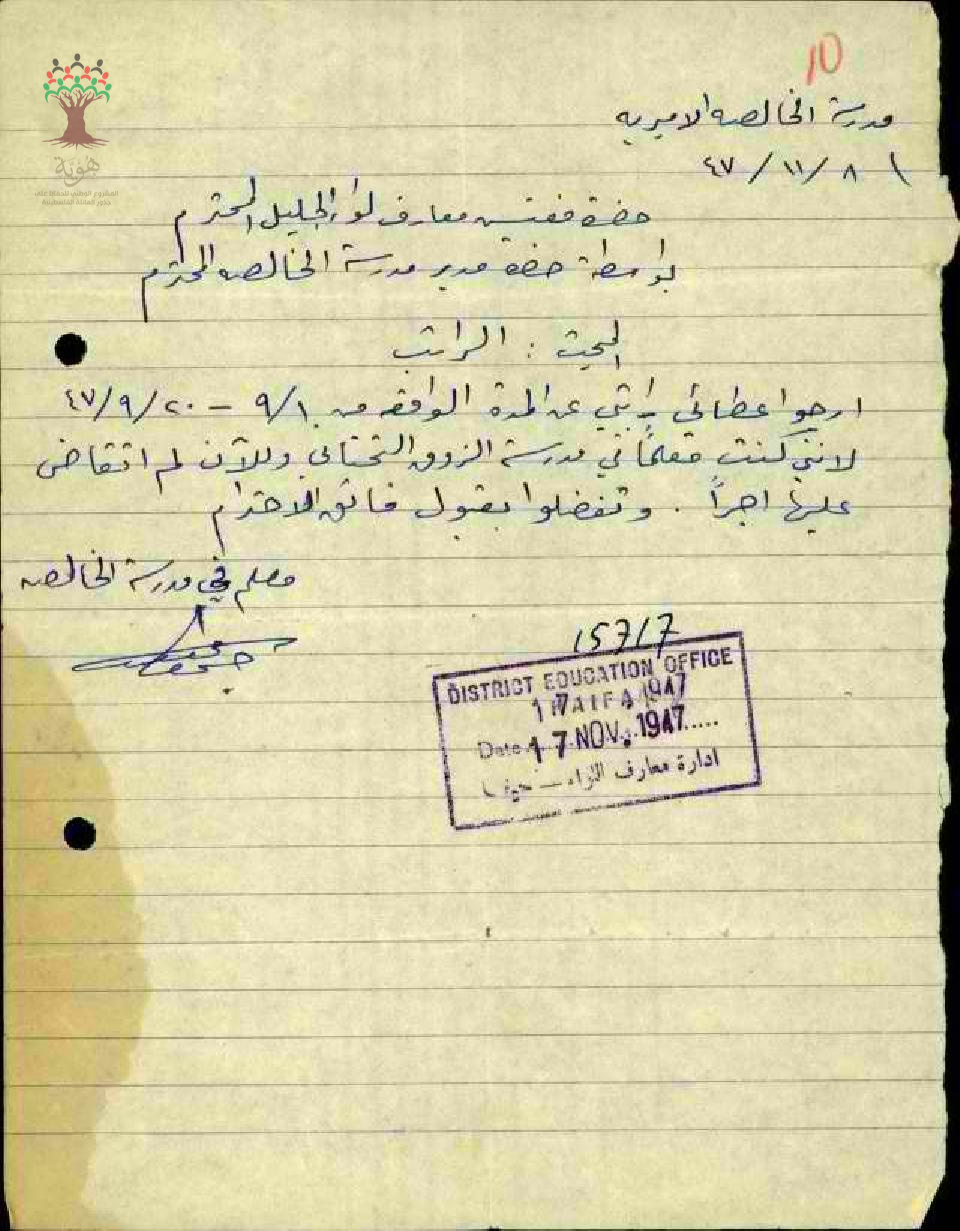 10
مدرسة الخالصه الاميريه
٤٧/١١/٨
حضرة مفتش معارف لواء الجليل المحترم
بواسطة حضرة مدير مدرسة الخالصه المحترم
المبحث : الراتب
ارجو اعطائي راتبي عن المدة الواقعه من ٩/١ – ٤٧/٩/٢٠
لانني كنت معلماً في مدرسة الزوق التحتاني وللآن لم اتقاضى
عليها اجراً . وتفضلوا بقبول فائق الاحترام
معلم في مدرسة الخالصه
15717
DISTRICT EDUCATION OFFICE
HAIFA
Date 17 NOV. 1947
ادارة معارف اللواء – حيفا
هوية